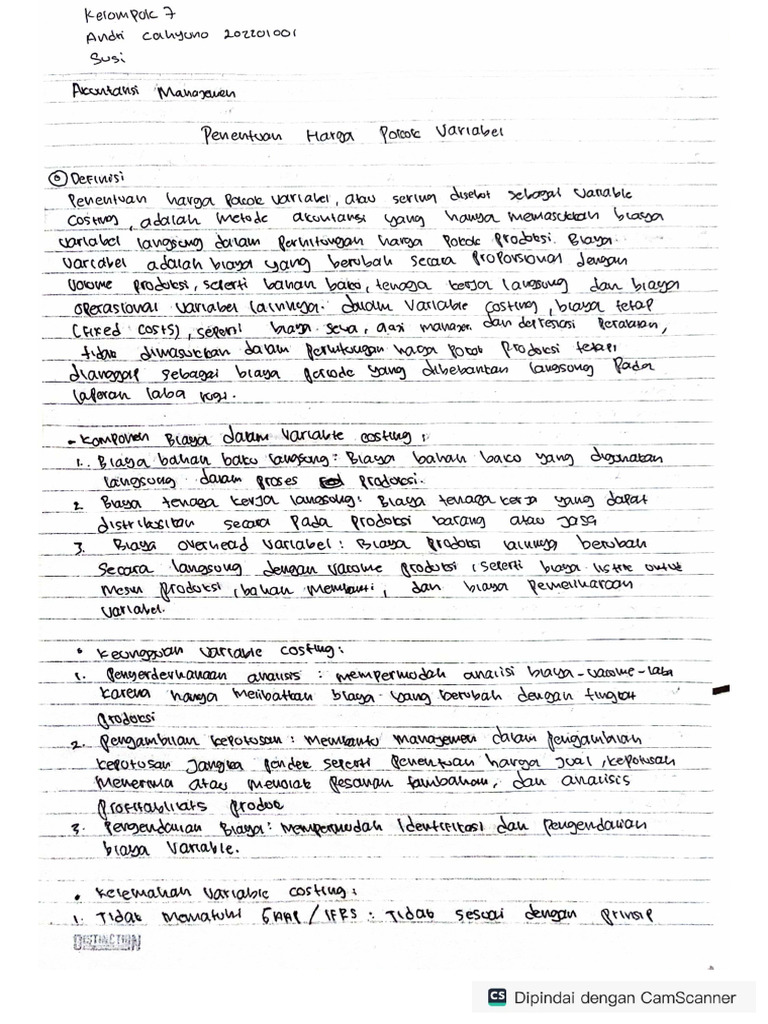 Kelompok 7
Andri Cahyono 202201001
Susi
Akuntansi Manajemen
Penentuan Harga Pokok Variabel
Definisi
Penentuan harga Pokok variabel, atau sering disebut sebagai variable
costing, adalah metode akuntansi yang hanya memasukkan biaya
variabel langsung dalam Perhitungan harga Pokok Produksi. Biaya
variabel adalah biaya yang berubah secara Proporsional dengan
volume produksi, seperti bahan baku, tenaga kerja langsung dan biaya
operasional variabel lainnya. dalam Variable costing, biaya tetap
(fixed costs), seperti biaya sewa, gaji manajer dan depresiasi Peralatan,
tidak dimasukkan dalam perhitungan harga Pokok Produksi tetapi
dianggap sebagai biaya periode yang dibebankan langsung Pada
laporan laba rugi.
- Komponen Biaya dalam variable costing :
1. Biaya bahan baku langsung : Biaya bahan baku yang digunakan
langsung dalam proses Produksi.
2. Biaya tenaga kerja langsung : Biaya tenaga kerja yang dapat
distribusikan secara Pada Produksi barang atau Jasa
3. Biaya overhead variabel : Biaya Produksi lainnya berubah
secara langsung dengan volume Produksi (seperti biaya listrik untuk
mesin produksi, bahan membantu, dan biaya Pemeliharaan
variabel.
• Keunggulan variable costing :
1. Penyederhanaan analisis : mempermudah analisi biaya-volume-laba
karena hanya melibatkan biaya yang berubah dengan tingkat
produksi
2. Pengambilan keputusan : Membantu manajemen dalam pengambilan
keputusan Jangka pendek seperti Penentuan harga Jual, keputusan
menerima atau menolak Pesanan tambahan, dan analisis
profitabilitats produk
3. Pengendalian Biaya : mempermudah Identifikasi dan pengendalian
biaya Variable.
• Kelemahan variable costing :
1. Tidak Mematuhi GAAP / IFRS : Tidak sesuai dengan prinsip
DISTINCTION
CS Dipindai dengan CamScanner